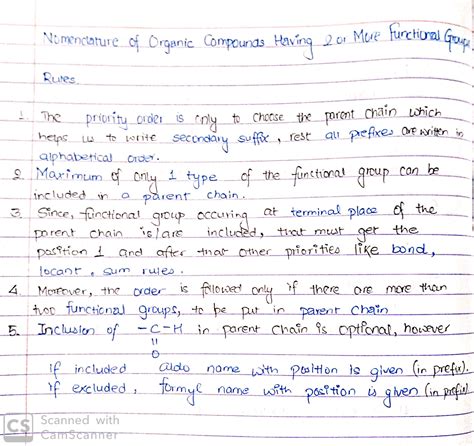 Nomenclature of Organic Compounds Having 2 or More Functional Groups.
Rules.
1. The priority order is only to choose the parent chain which
helps us to write secondary suffix, rest all prefixes are written in
alphabetical order.
2. Maximum of only 1 type of the functional group can be
included in a parent chain.
3. Since, functional group occuring at terminal place of the
parent chain is/are included, that must get the
position 1 and after that other priorities like bond,
locant, sum rules.
4. Moreover, the order is followed only if there are more than
two functional groups, to be put in parent chain
5. Inclusion of -C-H in parent chain is optional, however
O
if included aldo name with position is given (in prefix).
if excluded, formyl name with position is given (in prefix)
CS Scanned with
CamScanner